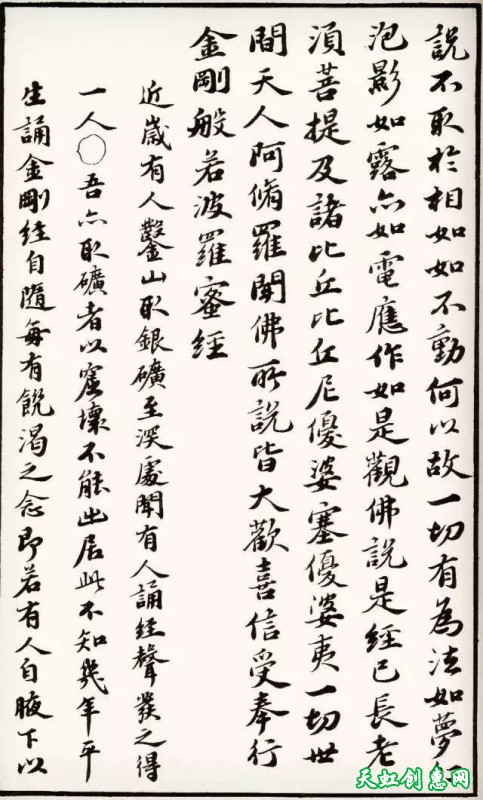 說不取於相如如不動何以故一切有為法如夢幻
泡影如露亦如電應作如是觀佛說是經已長老
須菩提及諸比丘比丘尼優婆塞優婆夷一切世
間天人阿脩羅聞佛所說皆大歡喜信受奉行
金剛般若波羅蜜經
近歲有人鑿山取銀礦至深處聞有人誦經聲發之得
一人〇吾亦取礦者以窟壞不能出居此不知幾年平
生誦金剛經自隨每有飢渴之念即若有人自腋下以
天虹创惠网